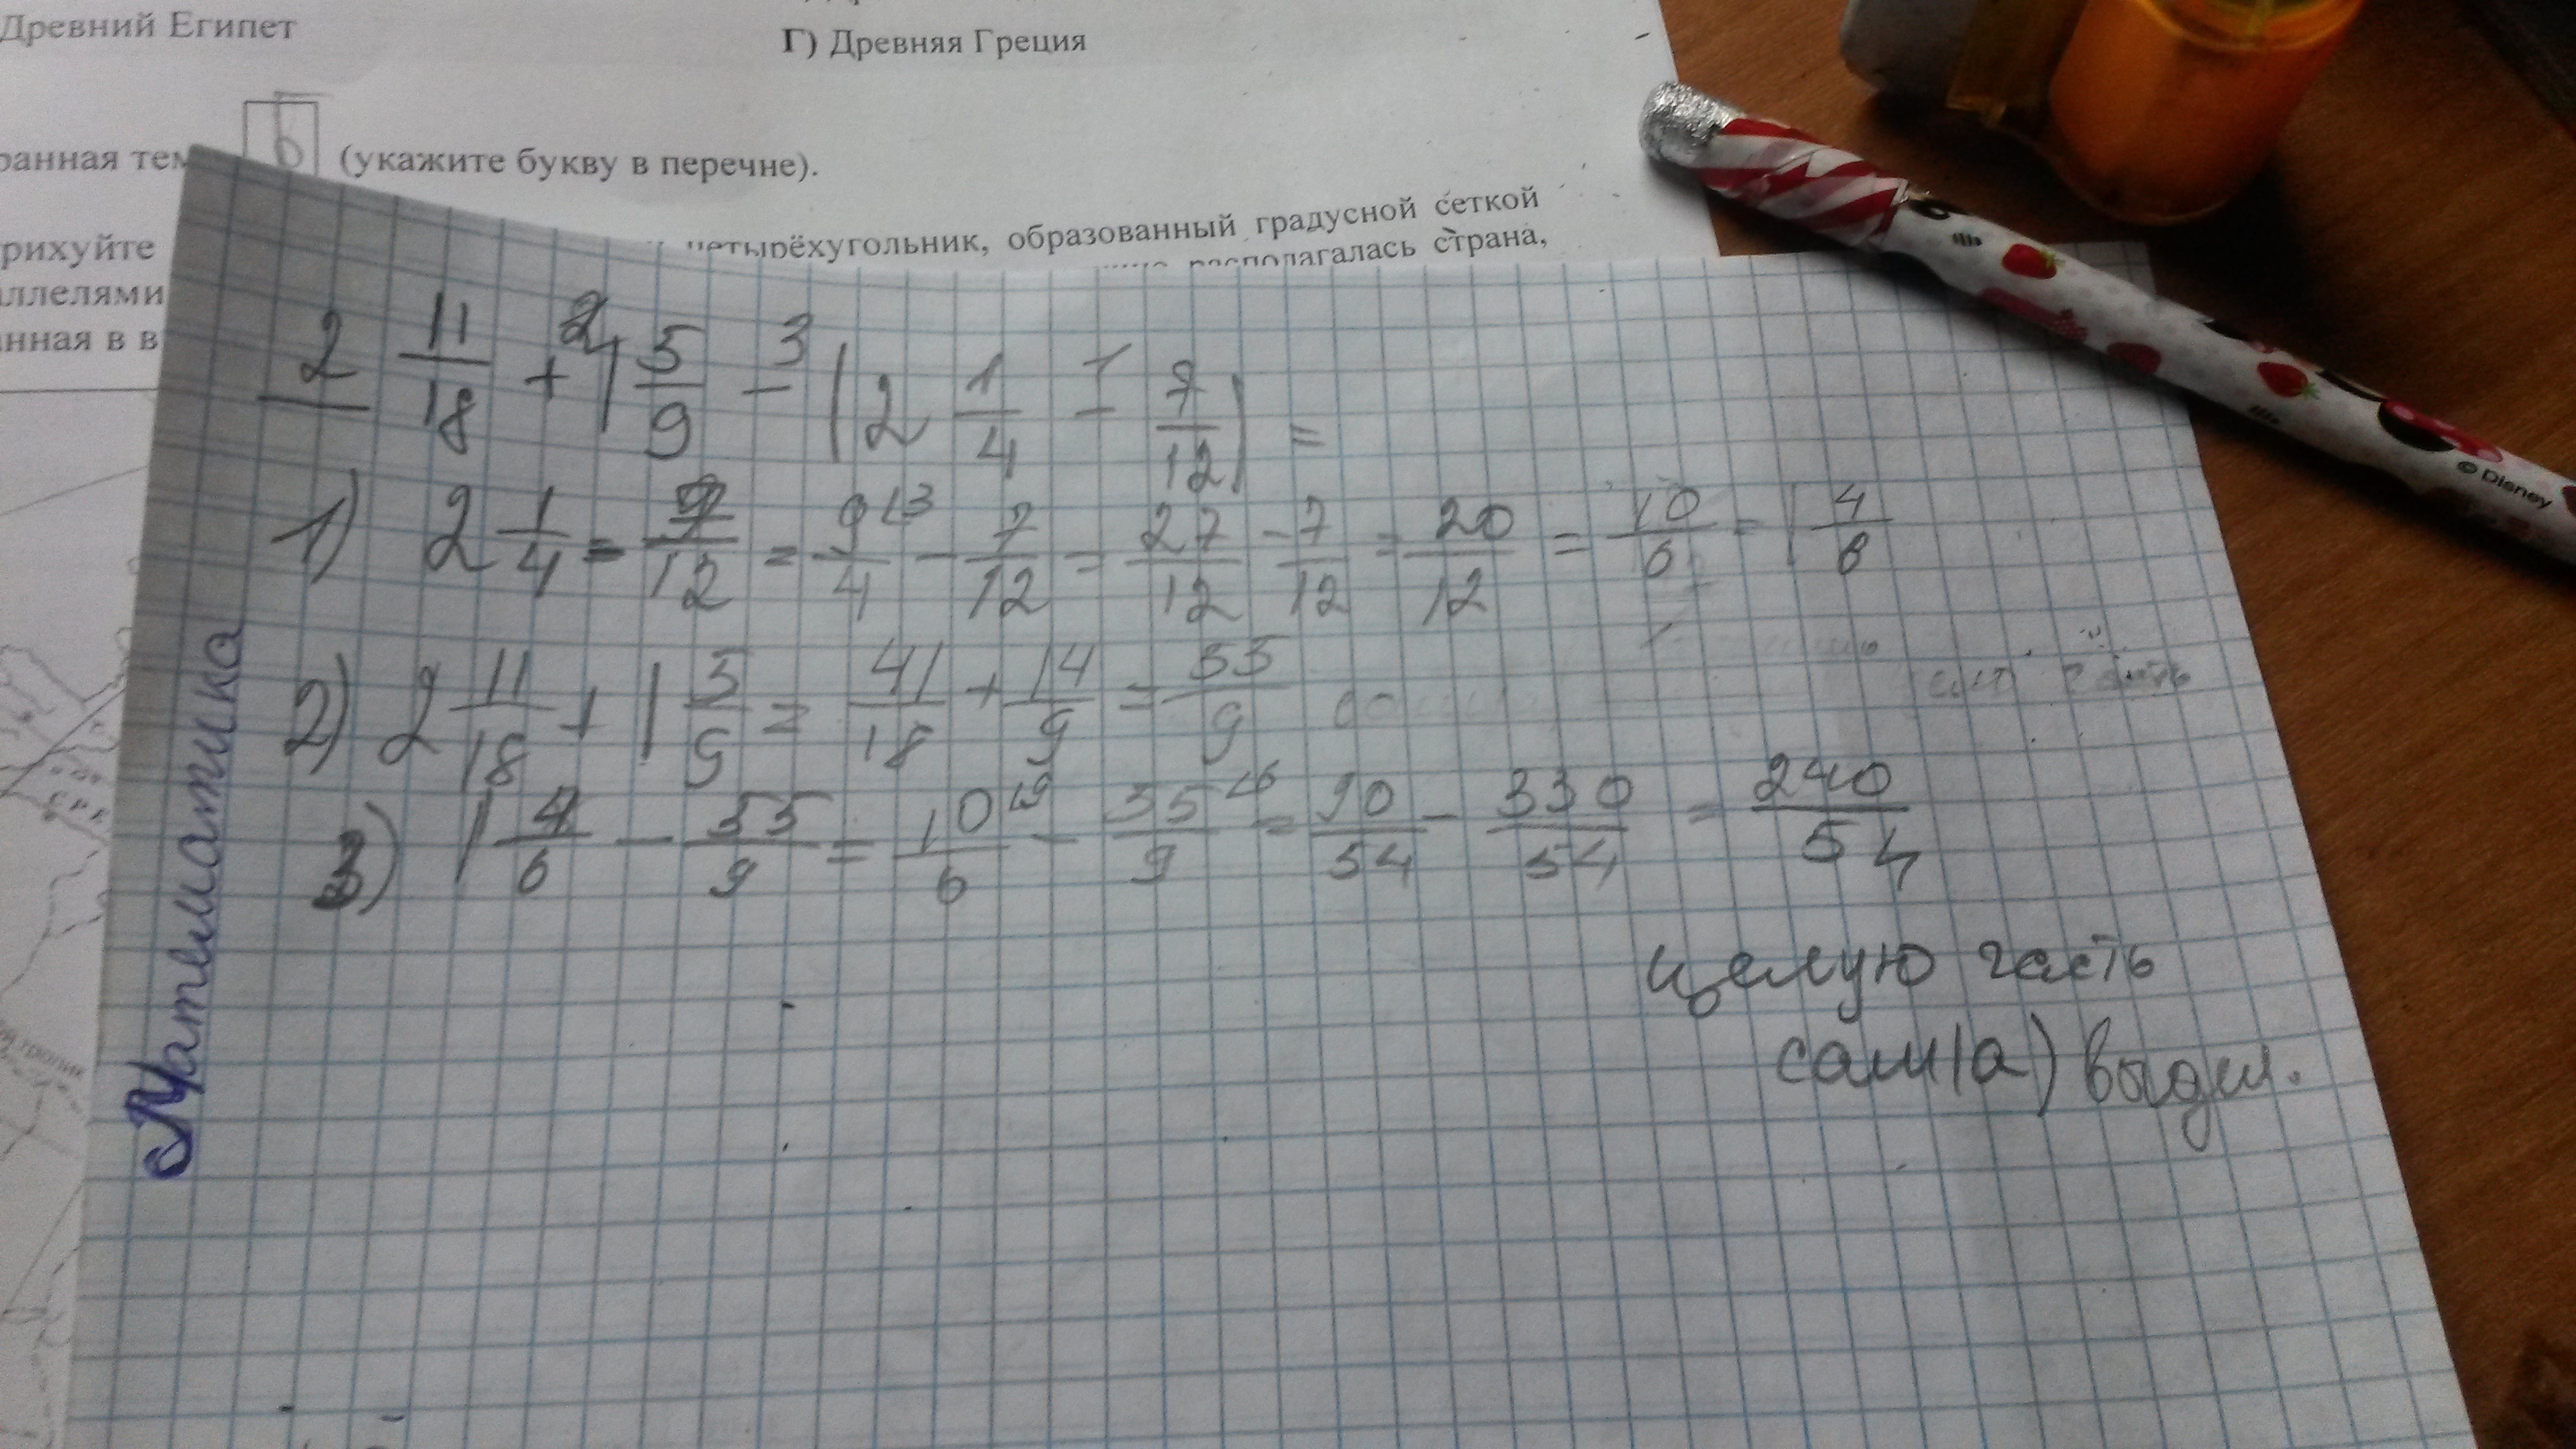 Древний Египет
Г) Древняя Греция
ранная тем б (укажите букву в перечне).
рихуйте четырёхугольник, образованный градусной сеткой
аллелями располагалась страна,
нная в в
2 11/18 + 1 5/9 - (2 1/4 - 7/12) =
2 3 1
1) 2 1/4 = 9/12 = 9/4 - 7/12 = 27/12 - 7/12 = 20/12 = 10/6 = 1 4/6
2) 2 11/18 + 1 5/9 = 41/18 + 14/9 = 55/9
3) 1 4/6 - 55/9 = 10/6 - 55/9 = 90/54 - 330/54 = 240/54
целую часть
сам(а) выдел.
Математика
© Disney